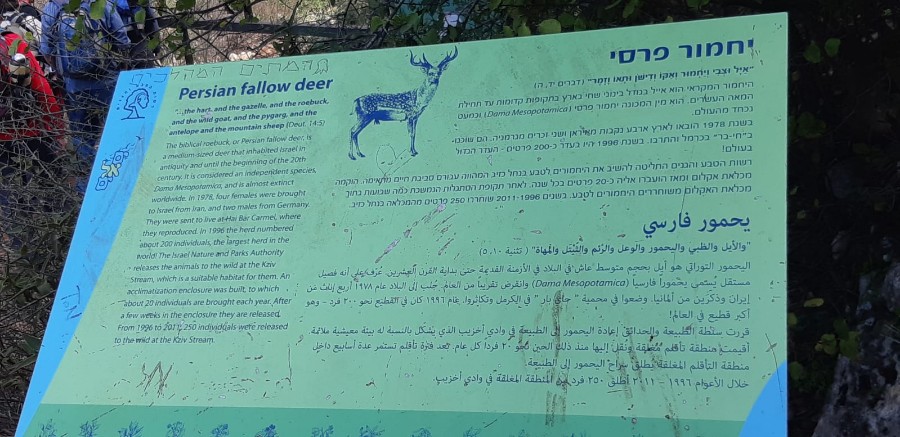 Persian fallow deer
"...the hart, and the gazelle, and the roebuck,
and the wild goat, and the pygarg, and the
antelope and the mountain sheep (Deut. 14:5)
The biblical roebuck, or Persian fallow deer, is
a medium-sized deer that inhabited Israel in
antiquity and until the beginning of the 20th
century. It is considered an independent species,
Dama Mesopotamica, and is almost extinct
worldwide. In 1978, four females were brought
to Israel from Iran, and two males from Germany.
They were sent to live at Hai Bar Carmel, where
they reproduced. In 1996 the herd numbered
about 200 individuals, the largest herd in the
world! The Israel Nature and Parks Authority
releases the animals to the wild at the Kziv
Stream, which is a suitable habitat for them. An
acclimatization enclosure was built, to which
about 20 individuals are brought each year. After
a few weeks in the enclosure they are released.
From 1996 to 2011, 250 individuals were released
to the wild at the Kziv Stream.
יחמור פרסי
"אַיָּל וּצְבִי וְיַחְמוּר וְאַקּוֹ וְדִישֹׁן וּתְאוֹ וָזָמֶר" (דברים יד, ה)
היחמור המקראי הוא אייל בגודל בינוני שחי בארץ בתקופות קדומות עד תחילת
המאה העשרים. הוא מין המכונה יחמור פרסי (Dama Mesopotamica) וכמעט
נכחד מהעולם.
בשנת 1978 הובאו לארץ ארבע נקבות מאיראן ושני זכרים מגרמניה. הם שוכנו
ב"חי-בר" בכרמל והתרבו. בשנת 1996 היו בעדר כ-200 פרטים - העדר הגדול
בעולם!
רשות הטבע והגנים החליטה להשיב את היחמורים לטבע בנחל כזיב המהווה עבורם סביבת חיים מתאימה. הוקמה
מכלאת אקלום ומאז הועברו אליה כ-20 פרטים בכל שנה. לאחר תקופת הסתגלות הנמשכת כמה שבועות בתוך
מכלאת האקלום משוחררים היחמורים לטבע. בשנים 2011-1996 שוחררו 250 פרטים מהמכלאה בנחל כזיב.
يحمور فارسي
"والأيل والظبي واليحمور والوعل والرّئم والثيتل والمهاة" (تثنية ٥،١٠)
اليحمور التوراتي هو أيل بحجم متوسط عاش في البلاد في الأزمنة القديمة حتى بداية القرن العشرين. عُرف على أنه فصيل
مستقل يُسمى يحموراً فارسياً (Dama Mesopotamica) وانقرض تقريباً من العالم. جُلب إلى البلاد عام ١٩٧٨ أربع إناث من
إيران وذكرين من ألمانيا. وضعوا في محمية "حاي بار" في الكرمل وتكاثروا. عام ١٩٩٦ كان في القطيع نحو ٢٠٠ فرد - وهو
أكبر قطيع في العالم!
قررت سلطة الطبيعة والحدائق إعادة اليحمور إلى الطبيعة في وادي أخزيب الذي يشكل بالنسبة له بيئة معيشية ملائمة
أقيمت منطقة تأقلم مغلقة ونُقل إليها منذ ذلك الحين نحو ٢٠ فرداً كل عام. بعد فترة تأقلم تستمر عدة أسابيع داخل
منطقة التأقلم المغلقة يُطلق سراح اليحمور إلى الطبيعة.
خلال الأعوام ١٩٩٦ - ٢٠١١ أُطلق ٢٥٠ فرد من المنطقة المغلقة في وادي أخزيب.